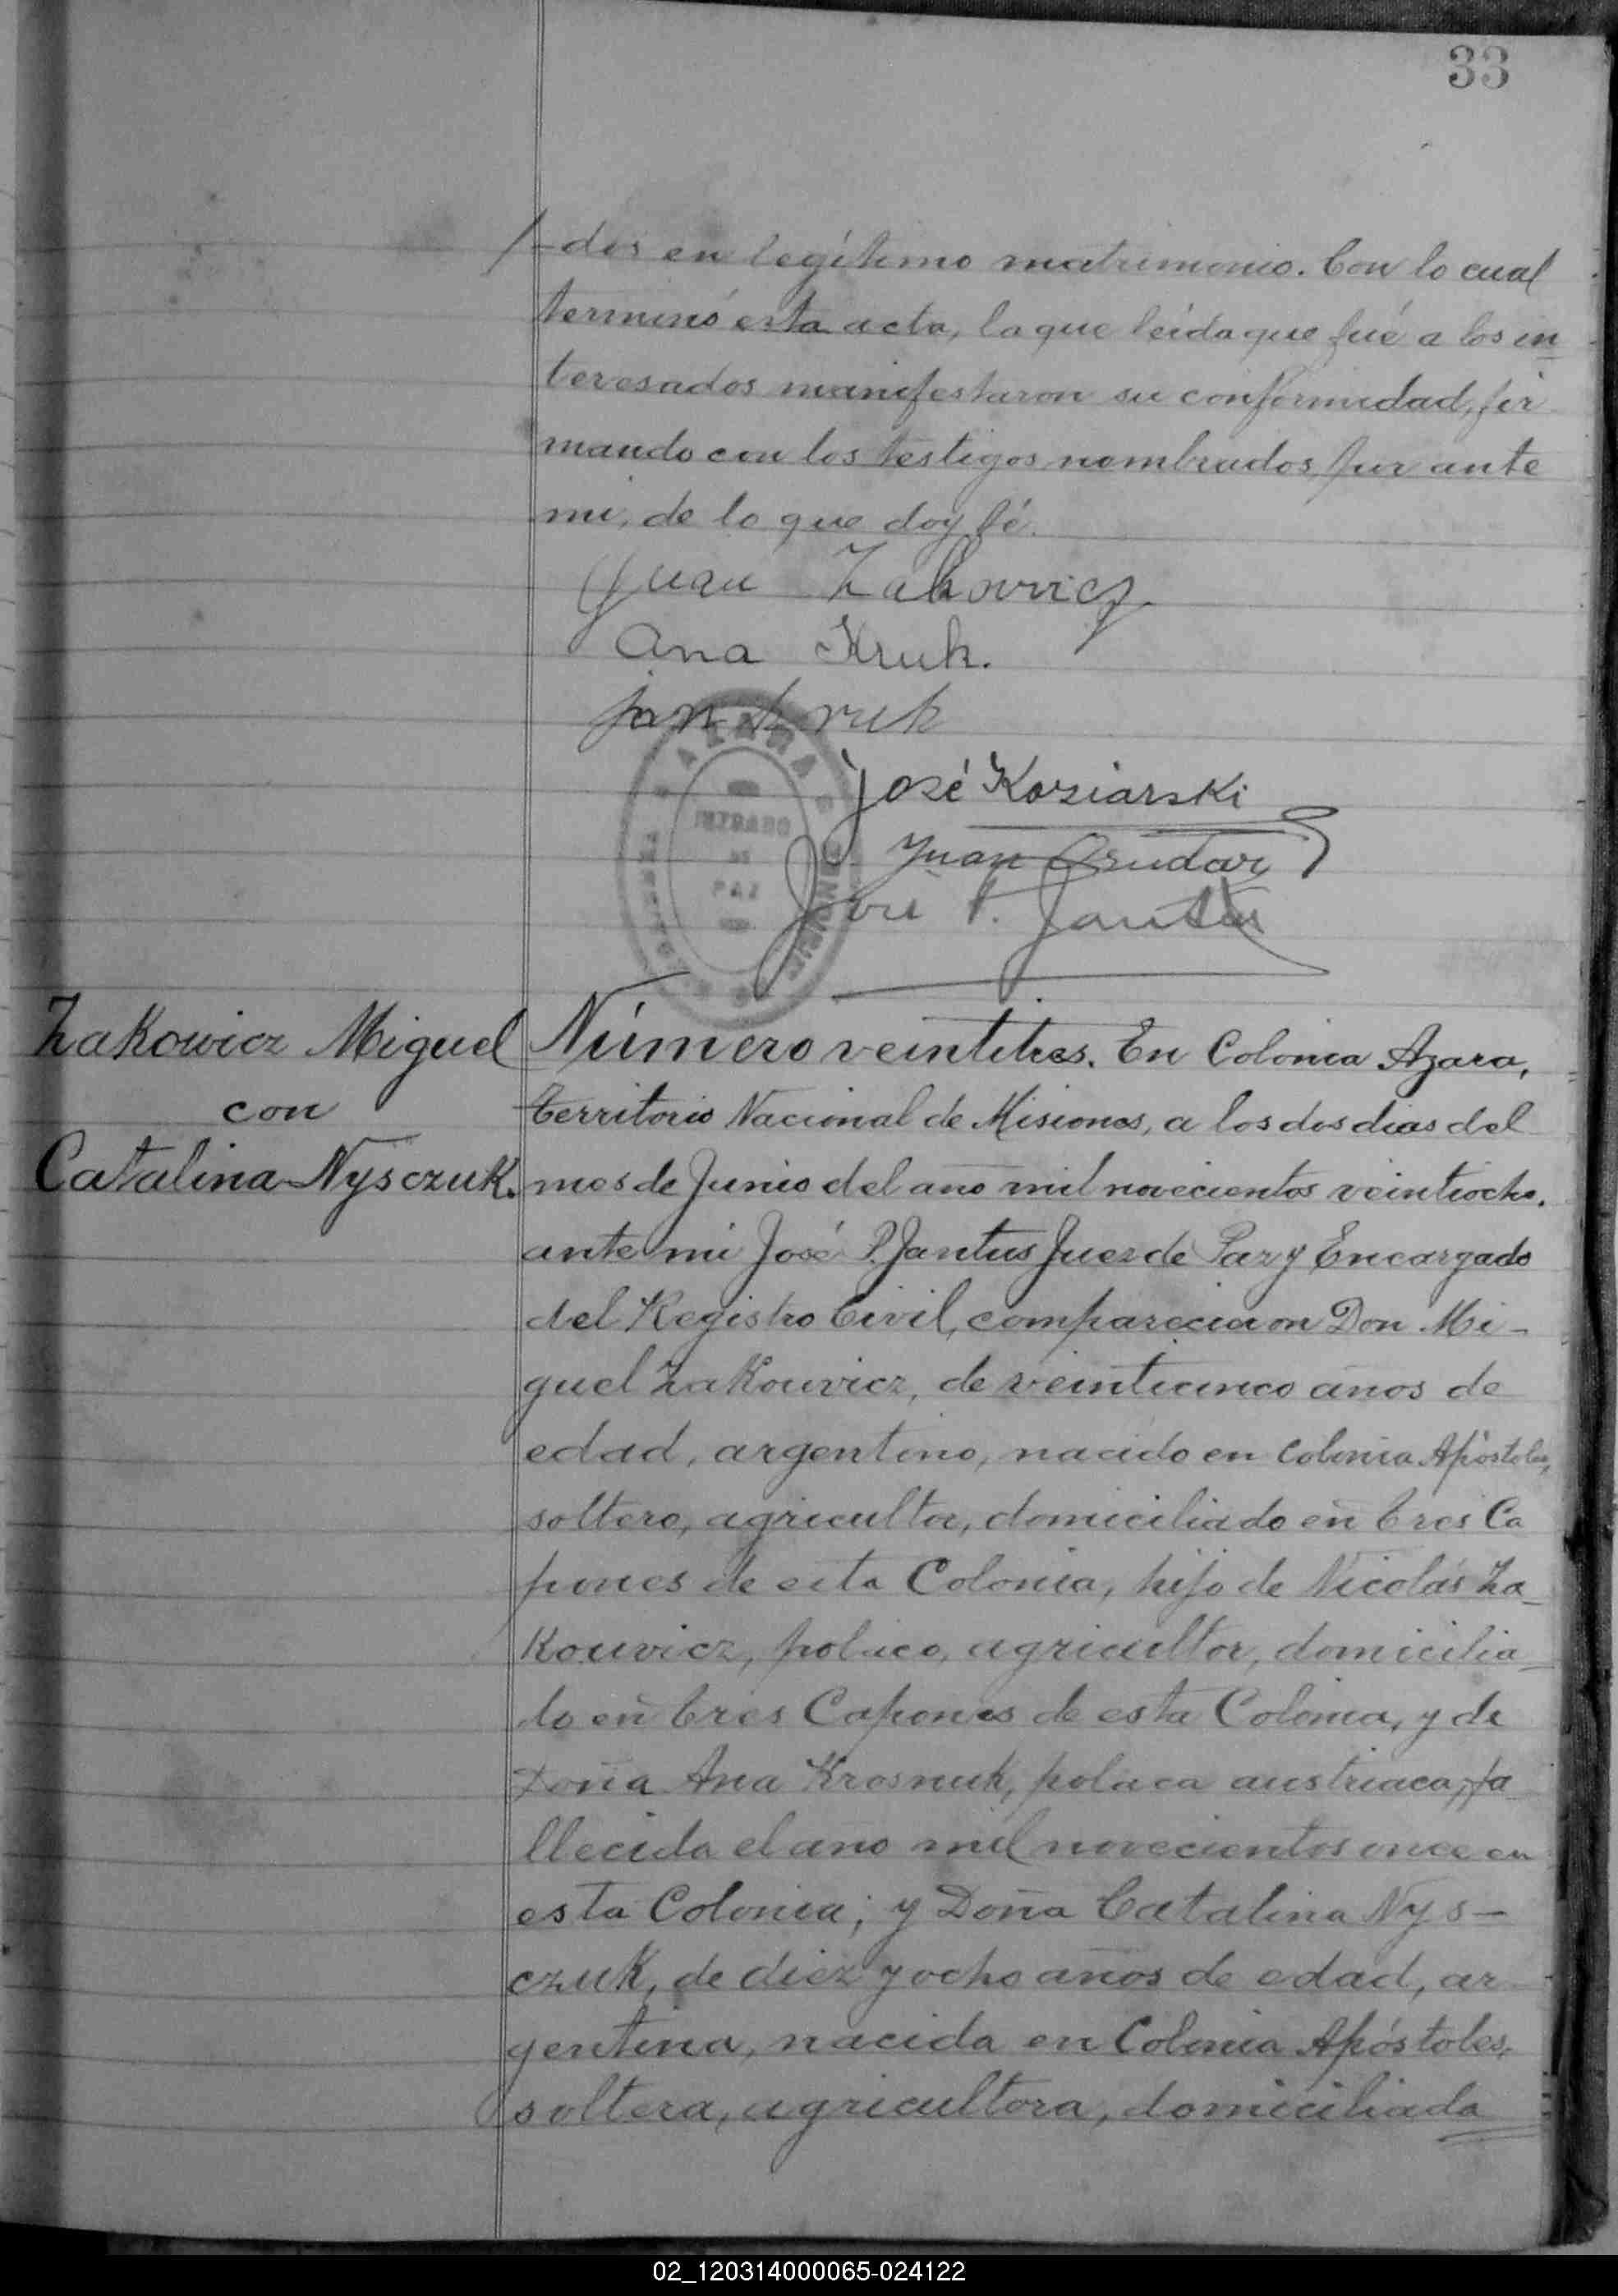 33
/-dos en legítimo matrimonio. Con lo cual
terminó esta acta, la que leída que fué a los in
teresados manifestaron su conformidad, fir
mando con los testigos nombrados, por ante
mi, de lo que doy fé.
Juan Zakovicz
Ana Kruk.
jan Kruk
AZARA
JUZGADO
DE
PAZ
MISIONES
José Koziarski
Juan
José P. Jantus
Zakowicz Miguel
con
Catalina Nysczuk.
Número veintitres. En Colonia Azara,
territorio Nacional de Misiones, a los dos dias del
mes de Junio del año mil novecientos veintiocho.
ante mi José P. Jantus Juez de Paz y Encargado
del Registro Civil, comparecieron Don Mi-
guel Zakouvicz, de veinticinco años de
edad, argentino, nacido en Colonia Apóstoles,
soltero, agricultor, domiciliado en Tres Ca
pones de esta Colonia, hijo de Nicolás Za_
Kouvicz, polaco, agricultor, domicilia_
do en tres Capones de esta Colonia, y de
Doña Ana Krosnuk, polaca austriaca, fa_
llecida el año mil novecientos once en
esta Colonia; y Doña Catalina Nys-
czuk, de diez y ocho años de edad, ar
gentina, nacida en Colonia Apóstoles,
soltera, agricultora, domiciliada
02_120314000065-024122